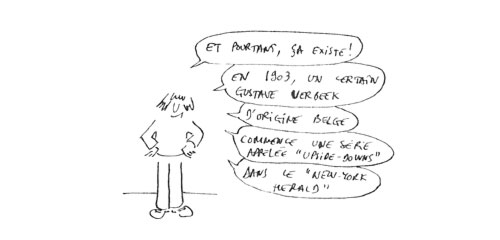 ET POURTANT, ÇA EXISTE!
EN 1903, UN CERTAIN
GUSTAVE VERBEEK
D'ORIGINE BELGE
COMMENCE UNE SÉRIE
APPELÉE "UPSIDE-DOWNS"
DANS LE "NEW-YORK
HERALD"